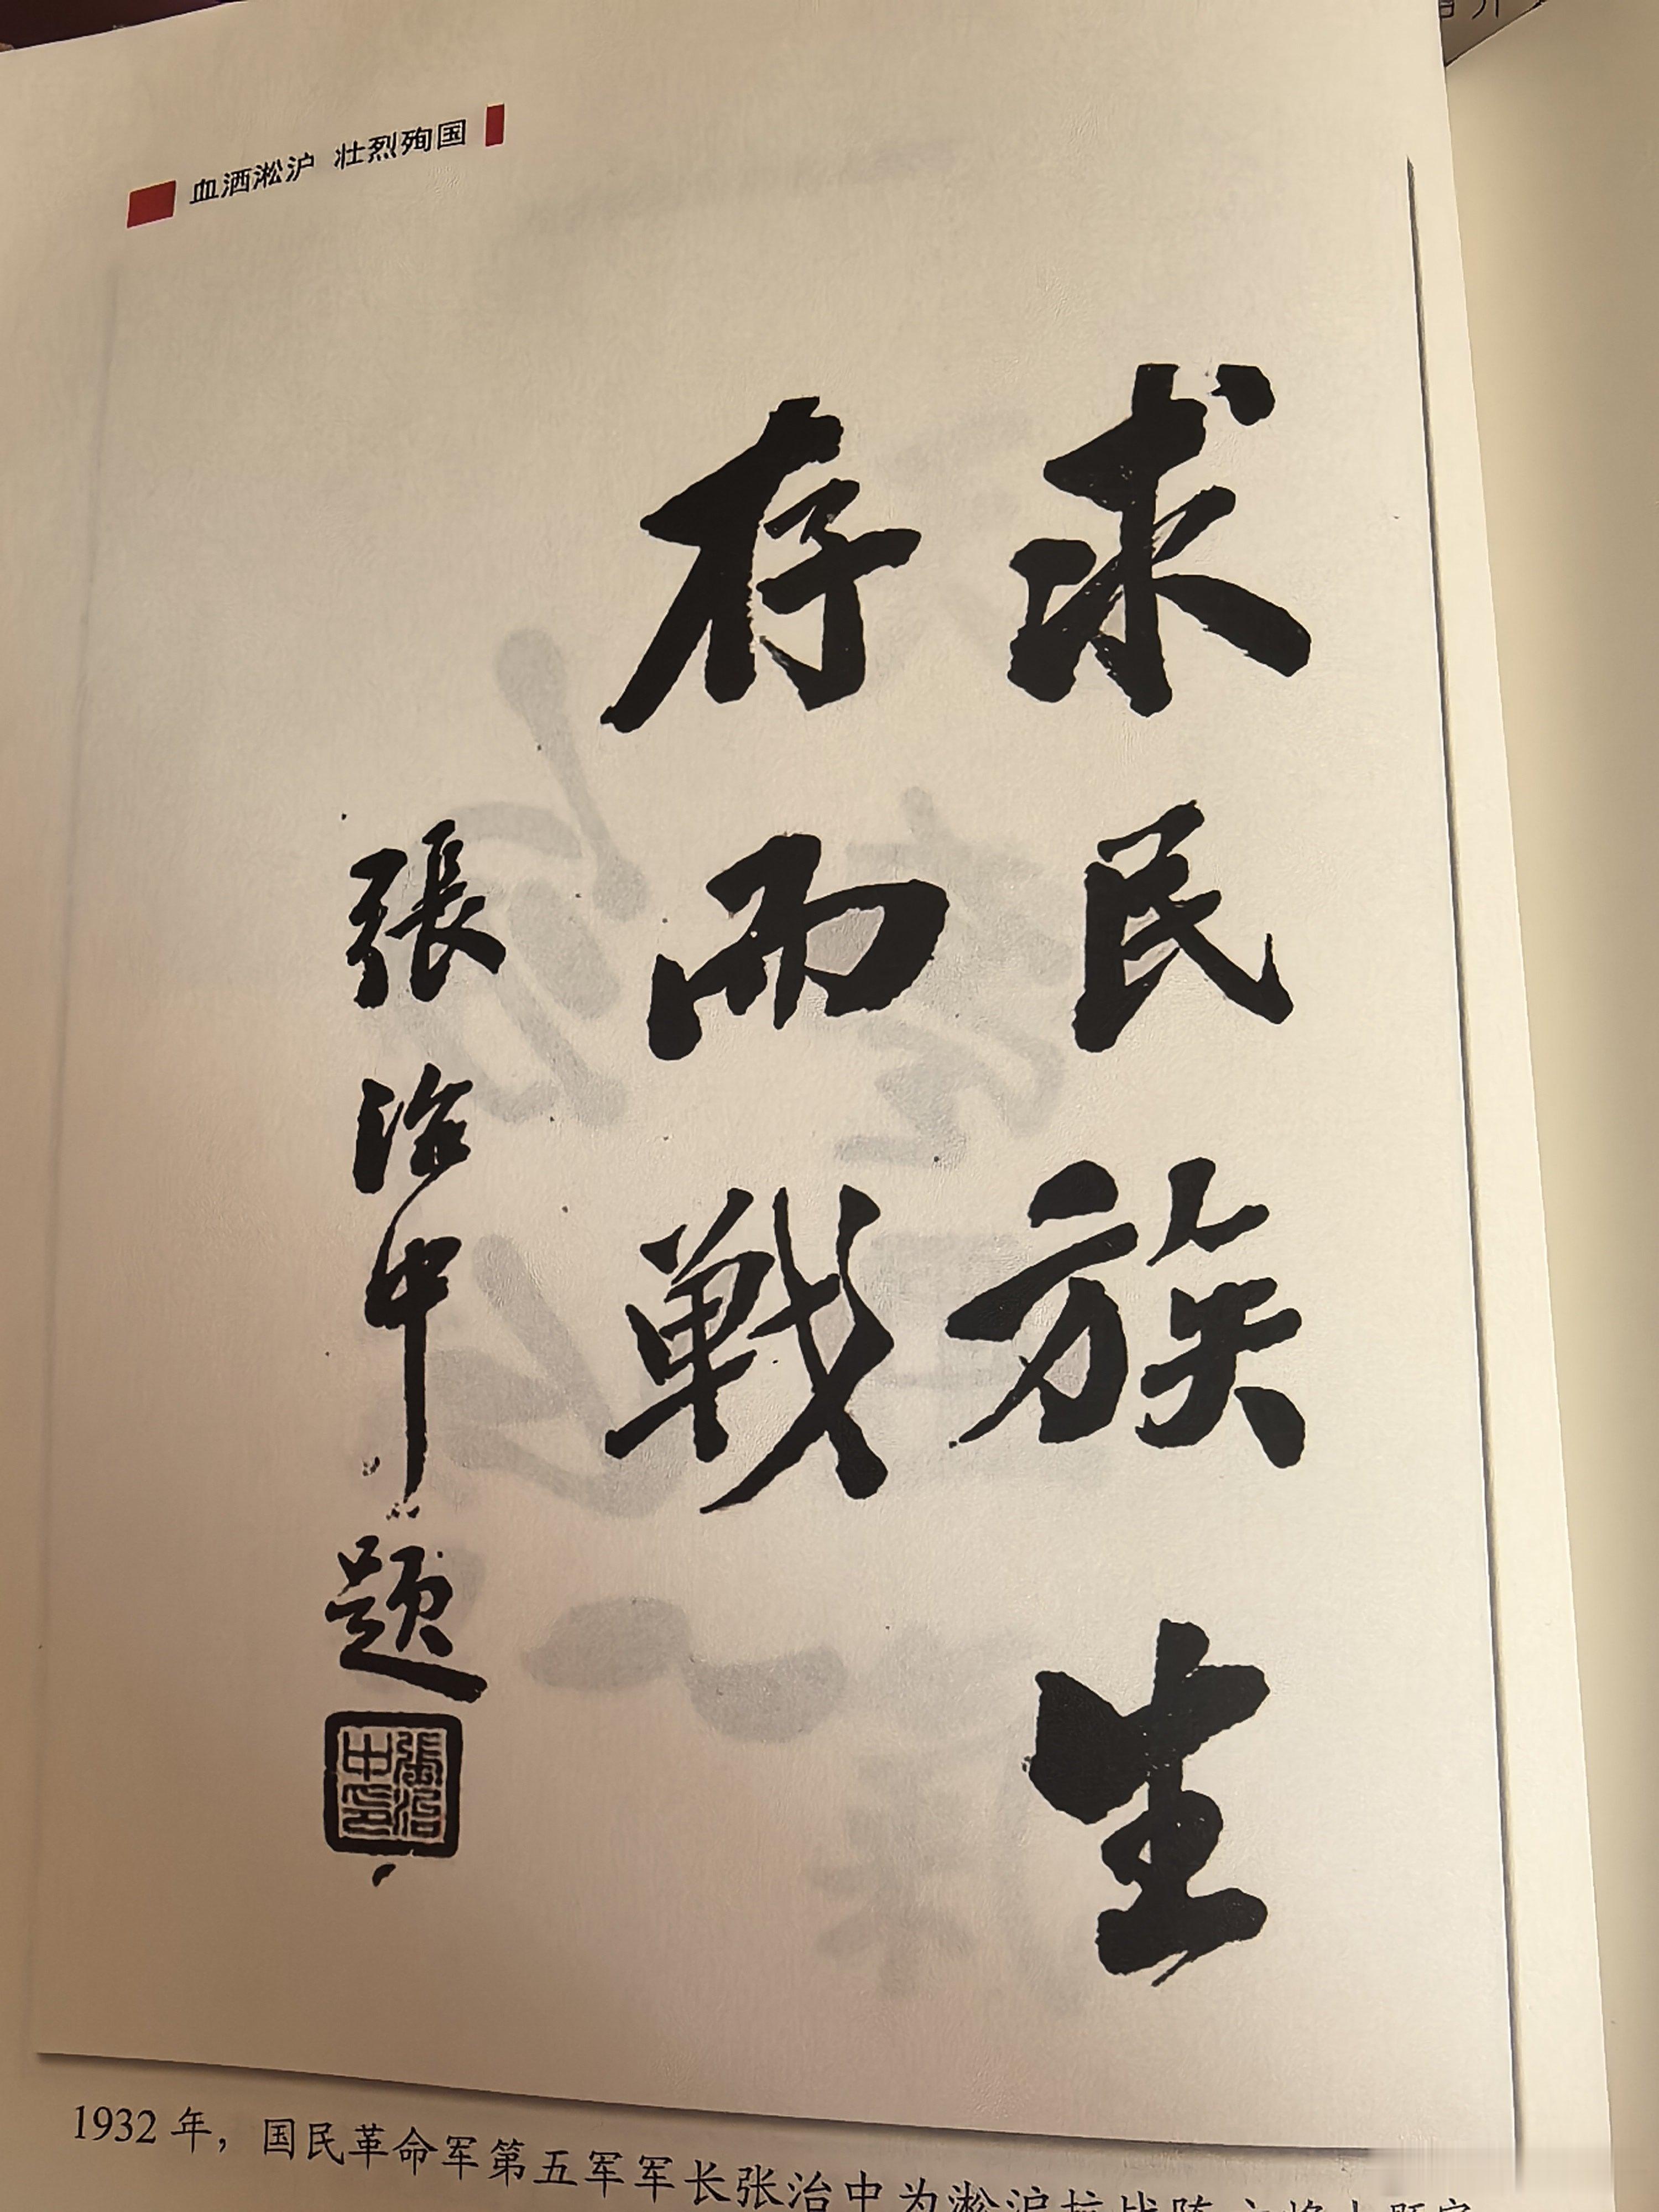 血洒淞沪 壮烈殉国
求民族生
存而戰
張治中题
張治
中印
1932年，国民革命军第五军军长张治中为淞沪抗战阵